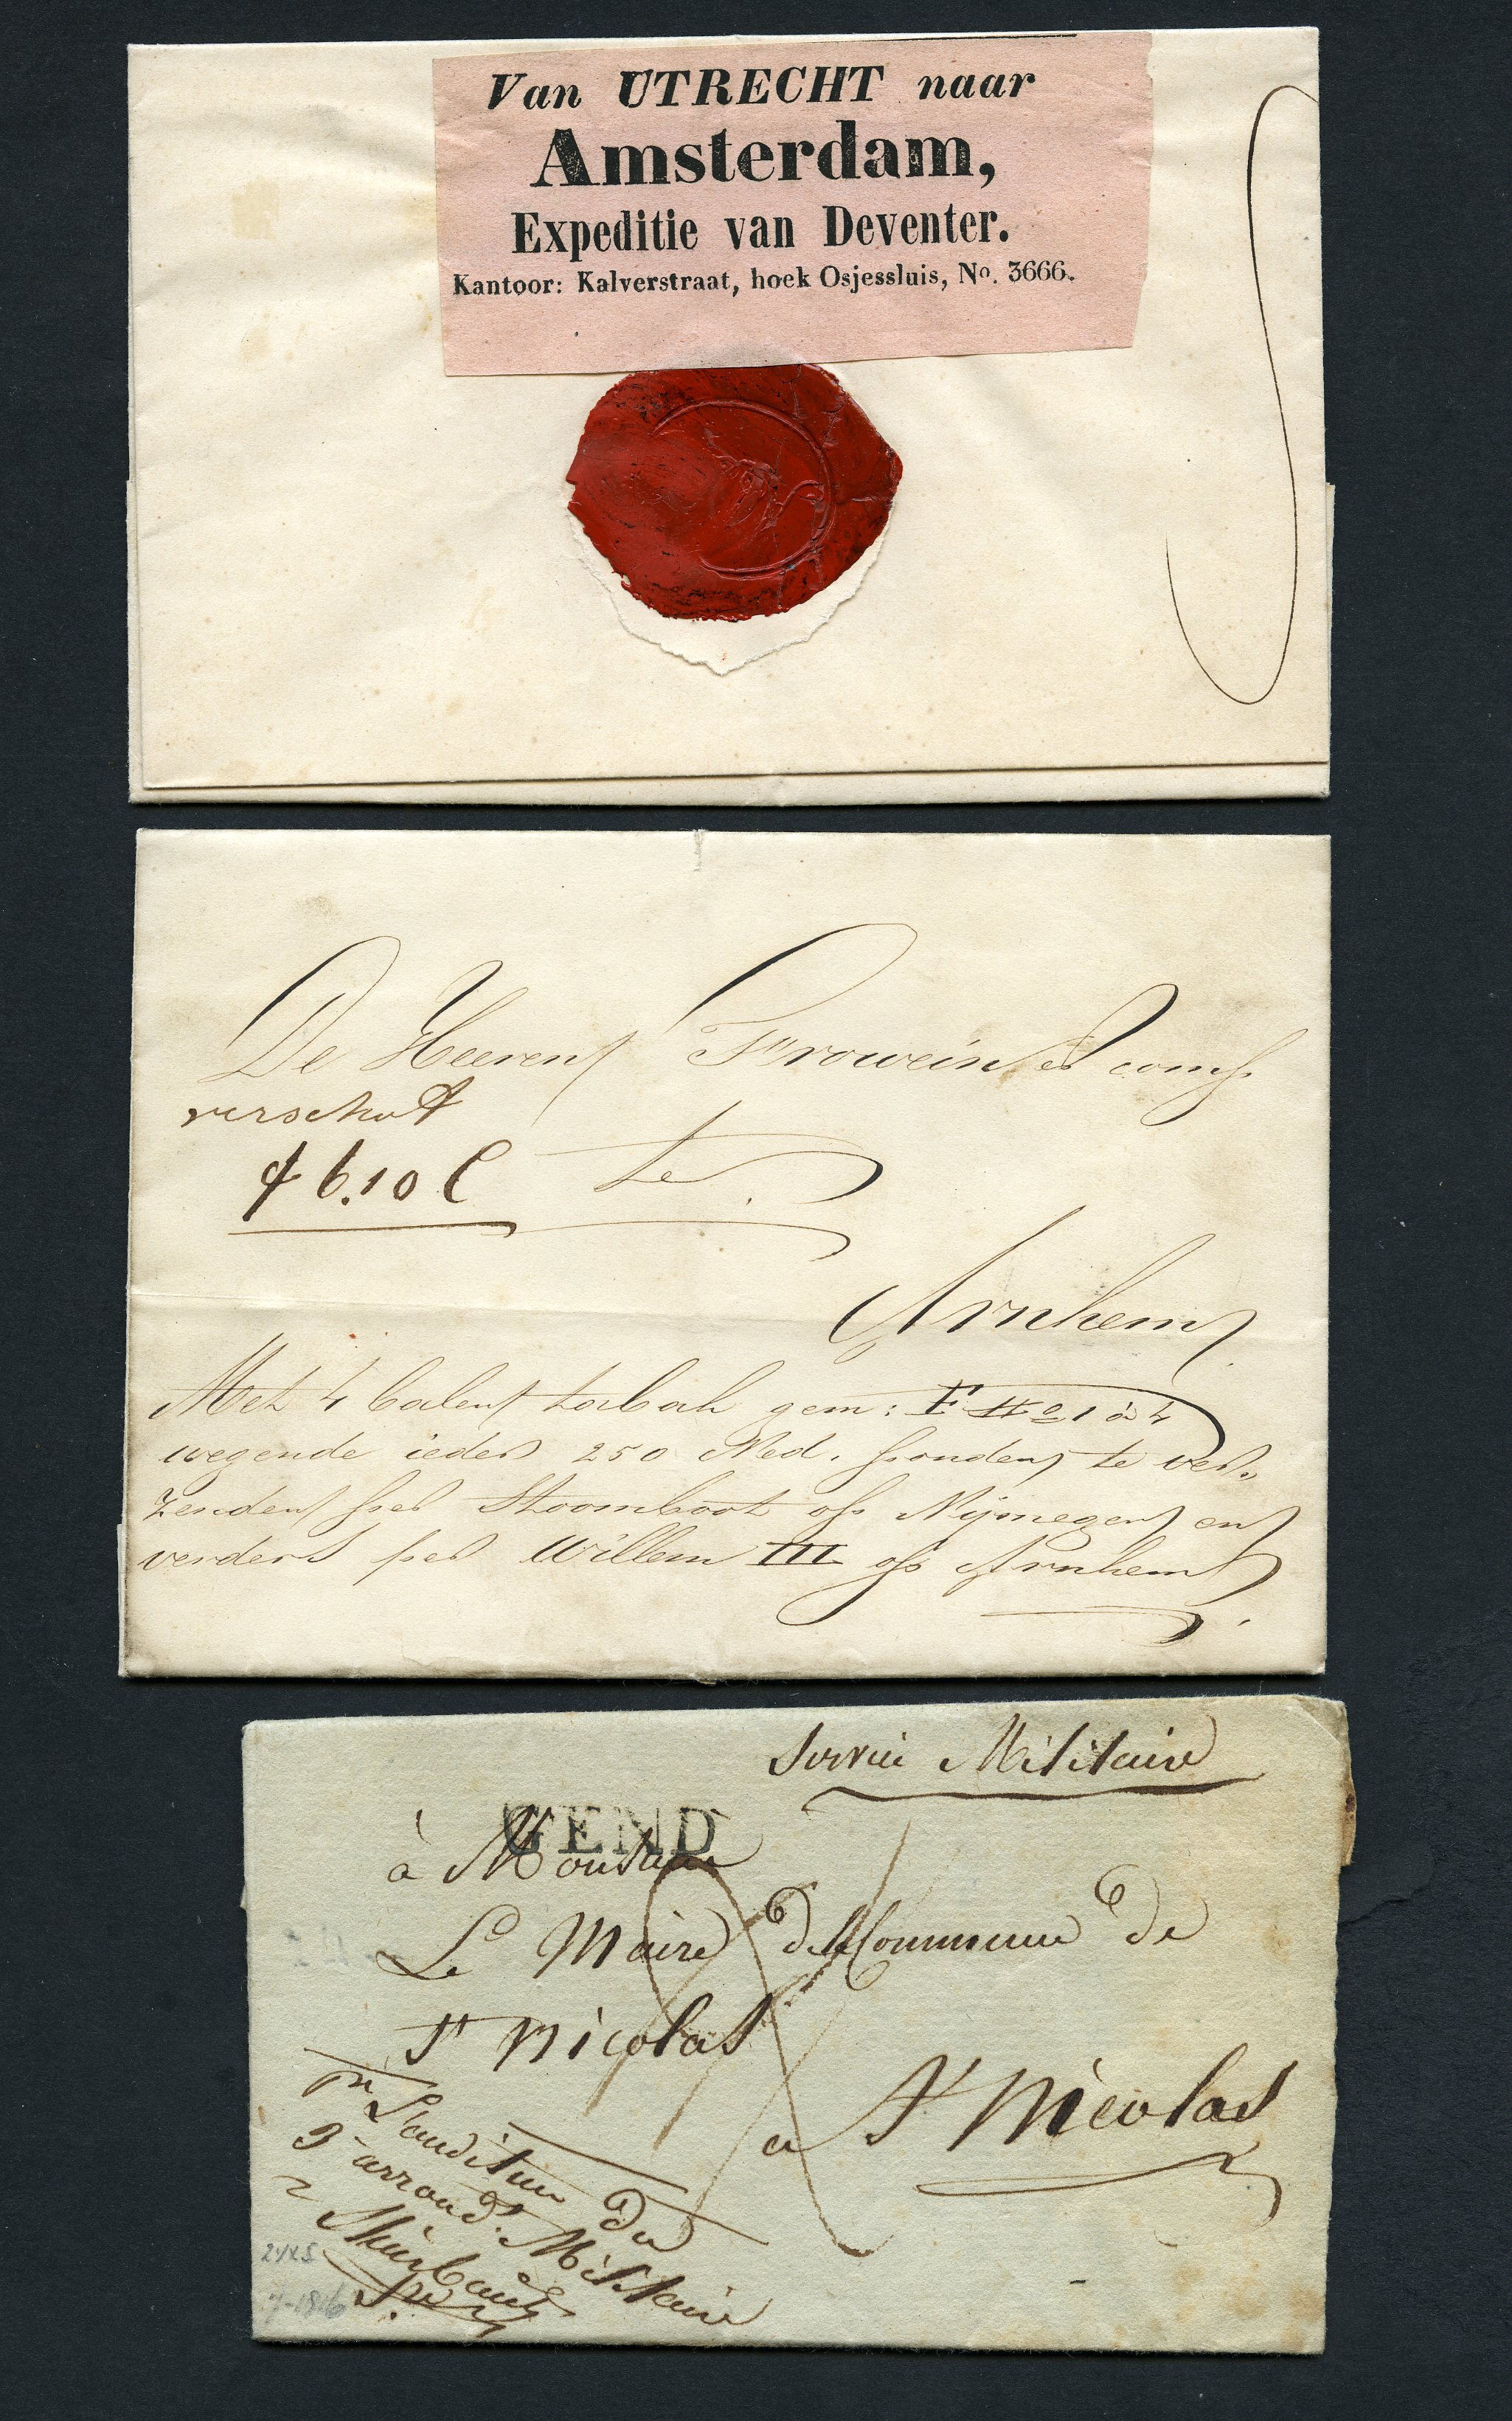 Van UTRECHT naar
Amsterdam,
Expeditie van Deventer.
Kantoor: Kalverstraat, hoek Osjessluis, No. 3666.
De Heeren Frowein & comp
verschot
f 6.10 C
te
Arnhem
Met 4 balen tabak gem: F No 1 à 4
wegende ieder 250 Ned. ponden te ver-
zenden per Stoomboot op Nijmegen en
verder per Willem III op Arnhem
Service Militaire
GEND
à Monsieur
Le Maire de Commune de
St Nicolas
a St Nicolas
pr L'auditeur du
arrond. Militaire